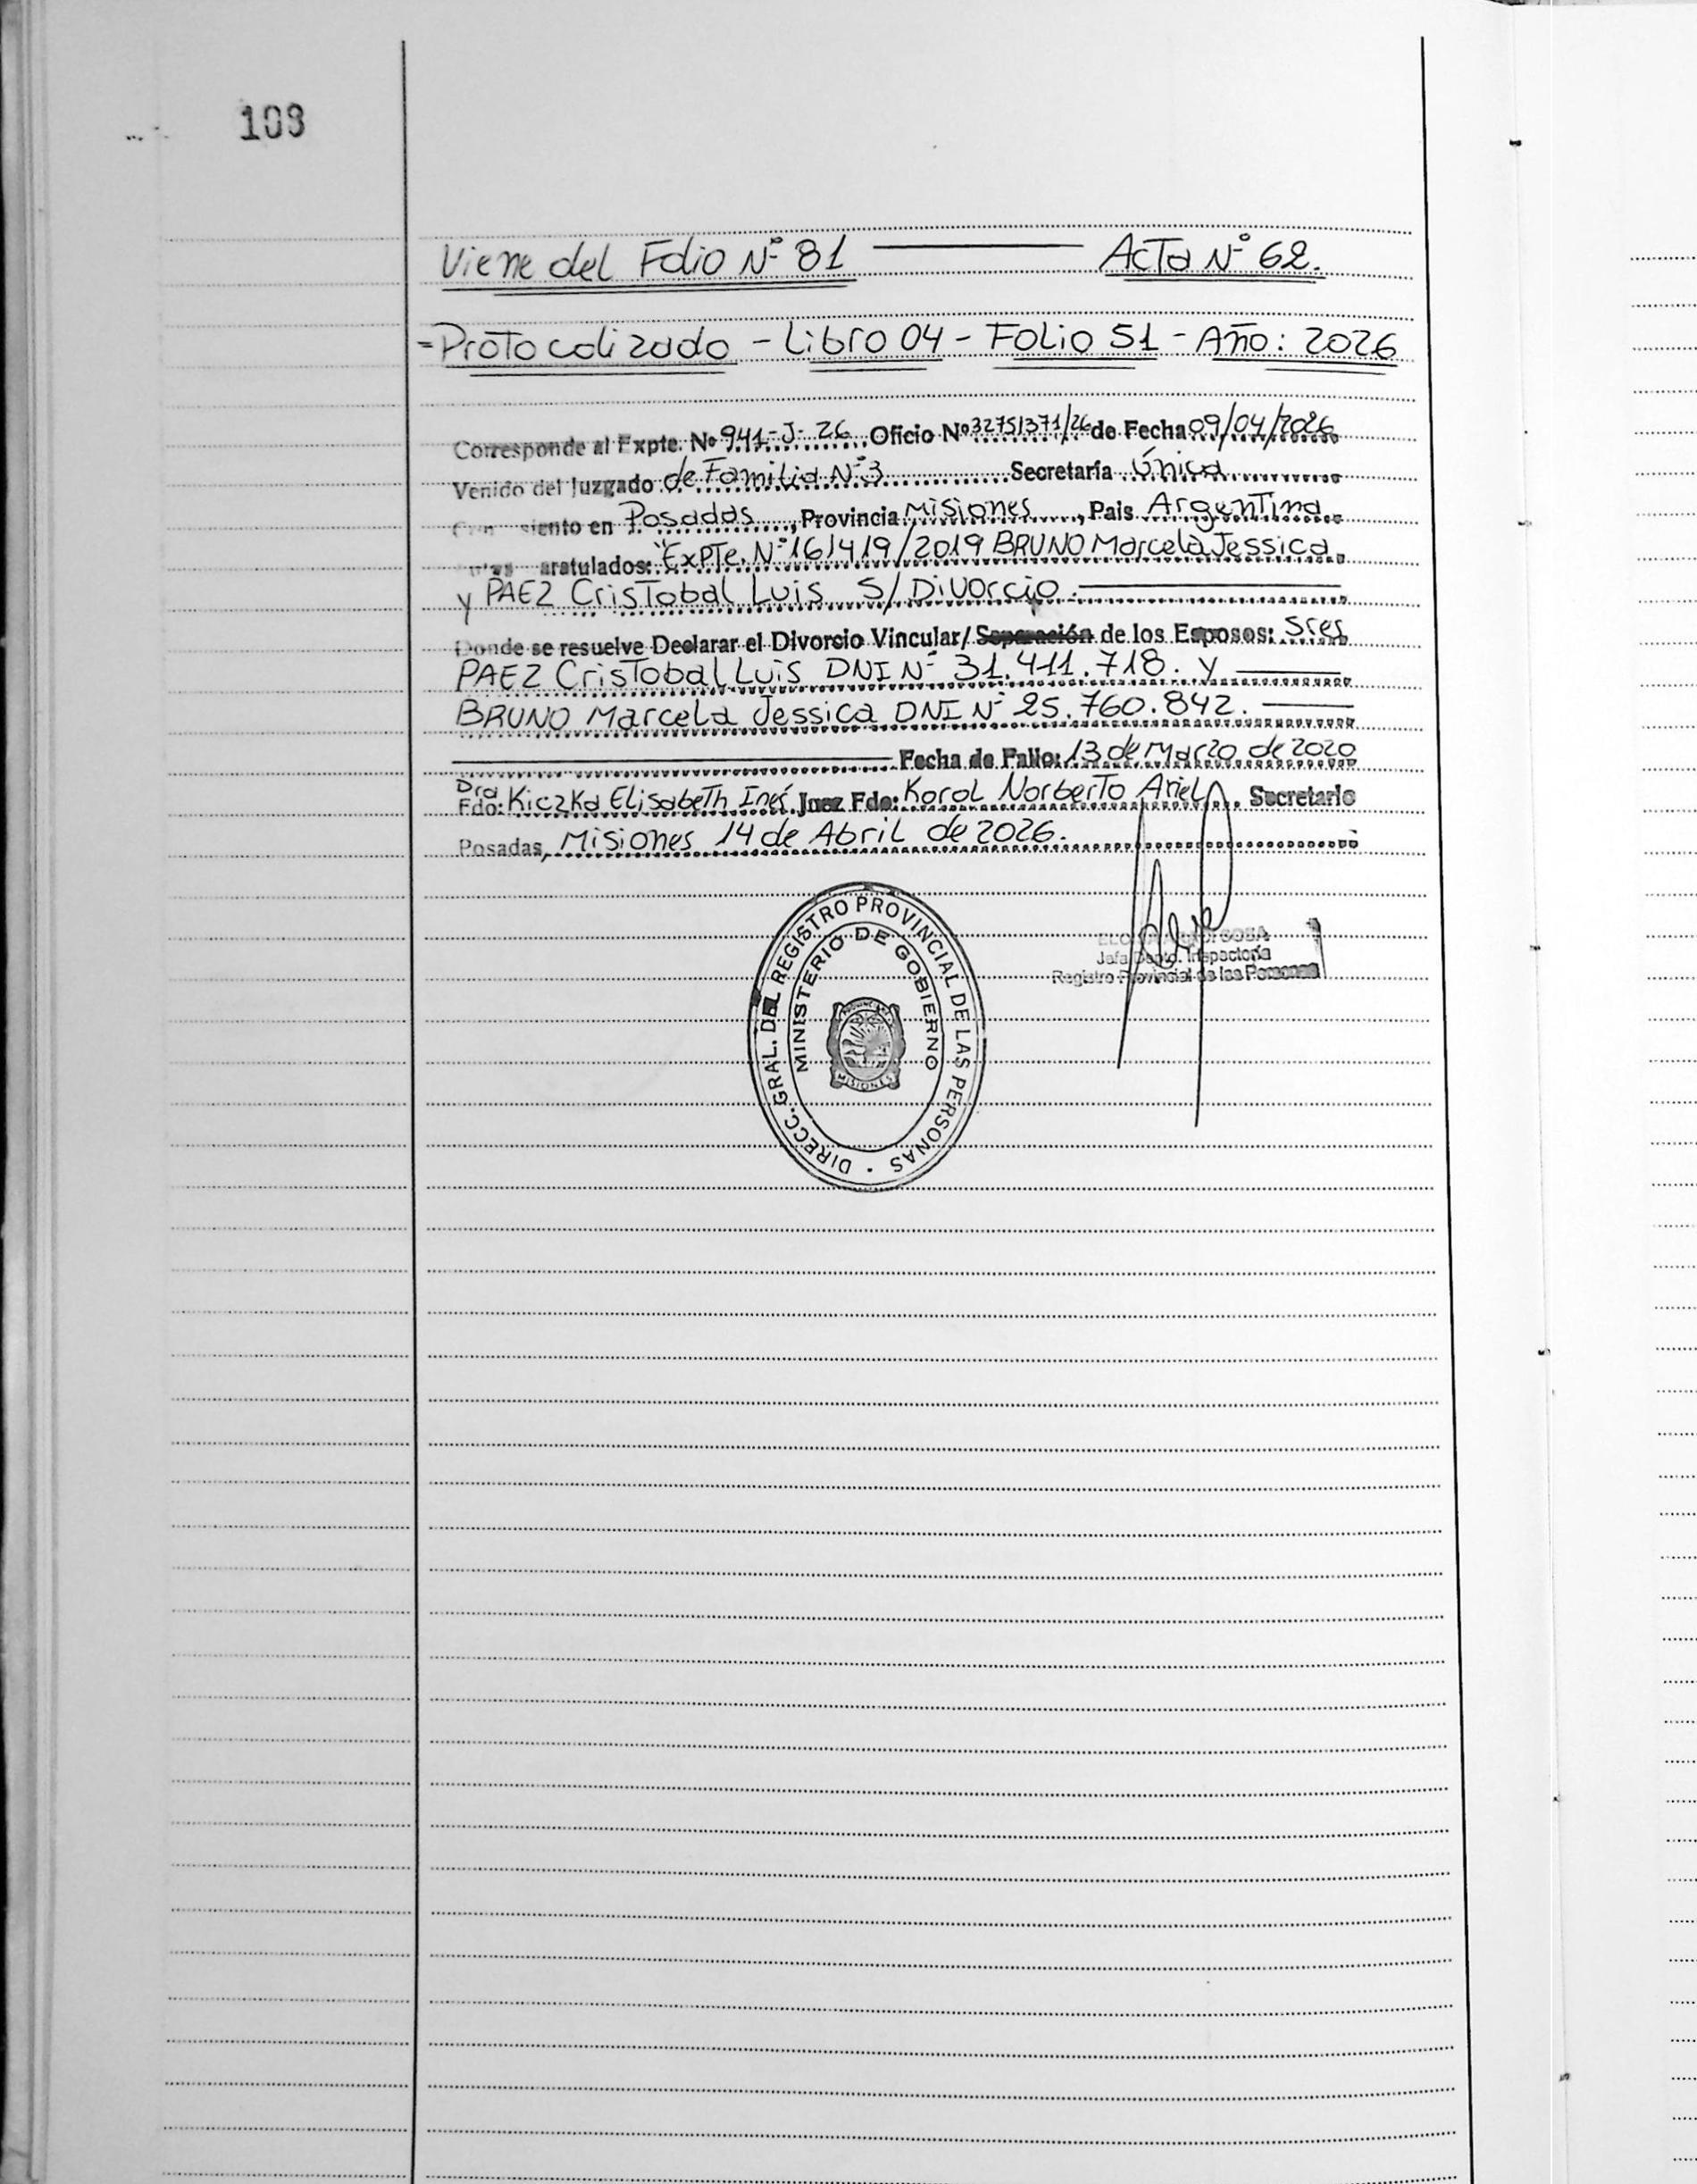 108
Viene del Folio Nº 81 ——— Acta Nº 62.
=Protocolizado - Libro 04 - Folio 51 - Año: 2026
Corresponde al Expte. Nº 941-J-26 Oficio Nº 3275/371/26 de Fecha 09/04/2026
Venido del Juzgado de Familia Nº3 Secretaría Única
siento en Posadas, Provincia Misiones, Pais Argentina
aratulados: "Expte. Nº 161419/2019 BRUNO Marcela Jessica
y PAEZ Cristobal Luis S/ Divorcio.
Donde se resuelve Declarar el Divorcio Vincular/Separación de los Esposos: Sres
PAEZ Cristobal Luis DNI Nº 31.411.718. y
BRUNO Marcela Jessica DNI Nº 25.760.842.
Fecha de Fallo: 13 de Marzo de 2020
Dra
Fdo: Kiczka Elisabeth Inés Juez Fdo: Korol Norberto Ariel. Secretario
Posadas, Misiones 14 de Abril de 2026.
DIRECC. GRAL. DEL REGISTRO PROVINCIAL DE LAS PERSONAS
MINISTERIO DE GOBIERNO
MISIONES
SOSA
Jefa Depto. Inspectoría
Registro Provincial de las Personas